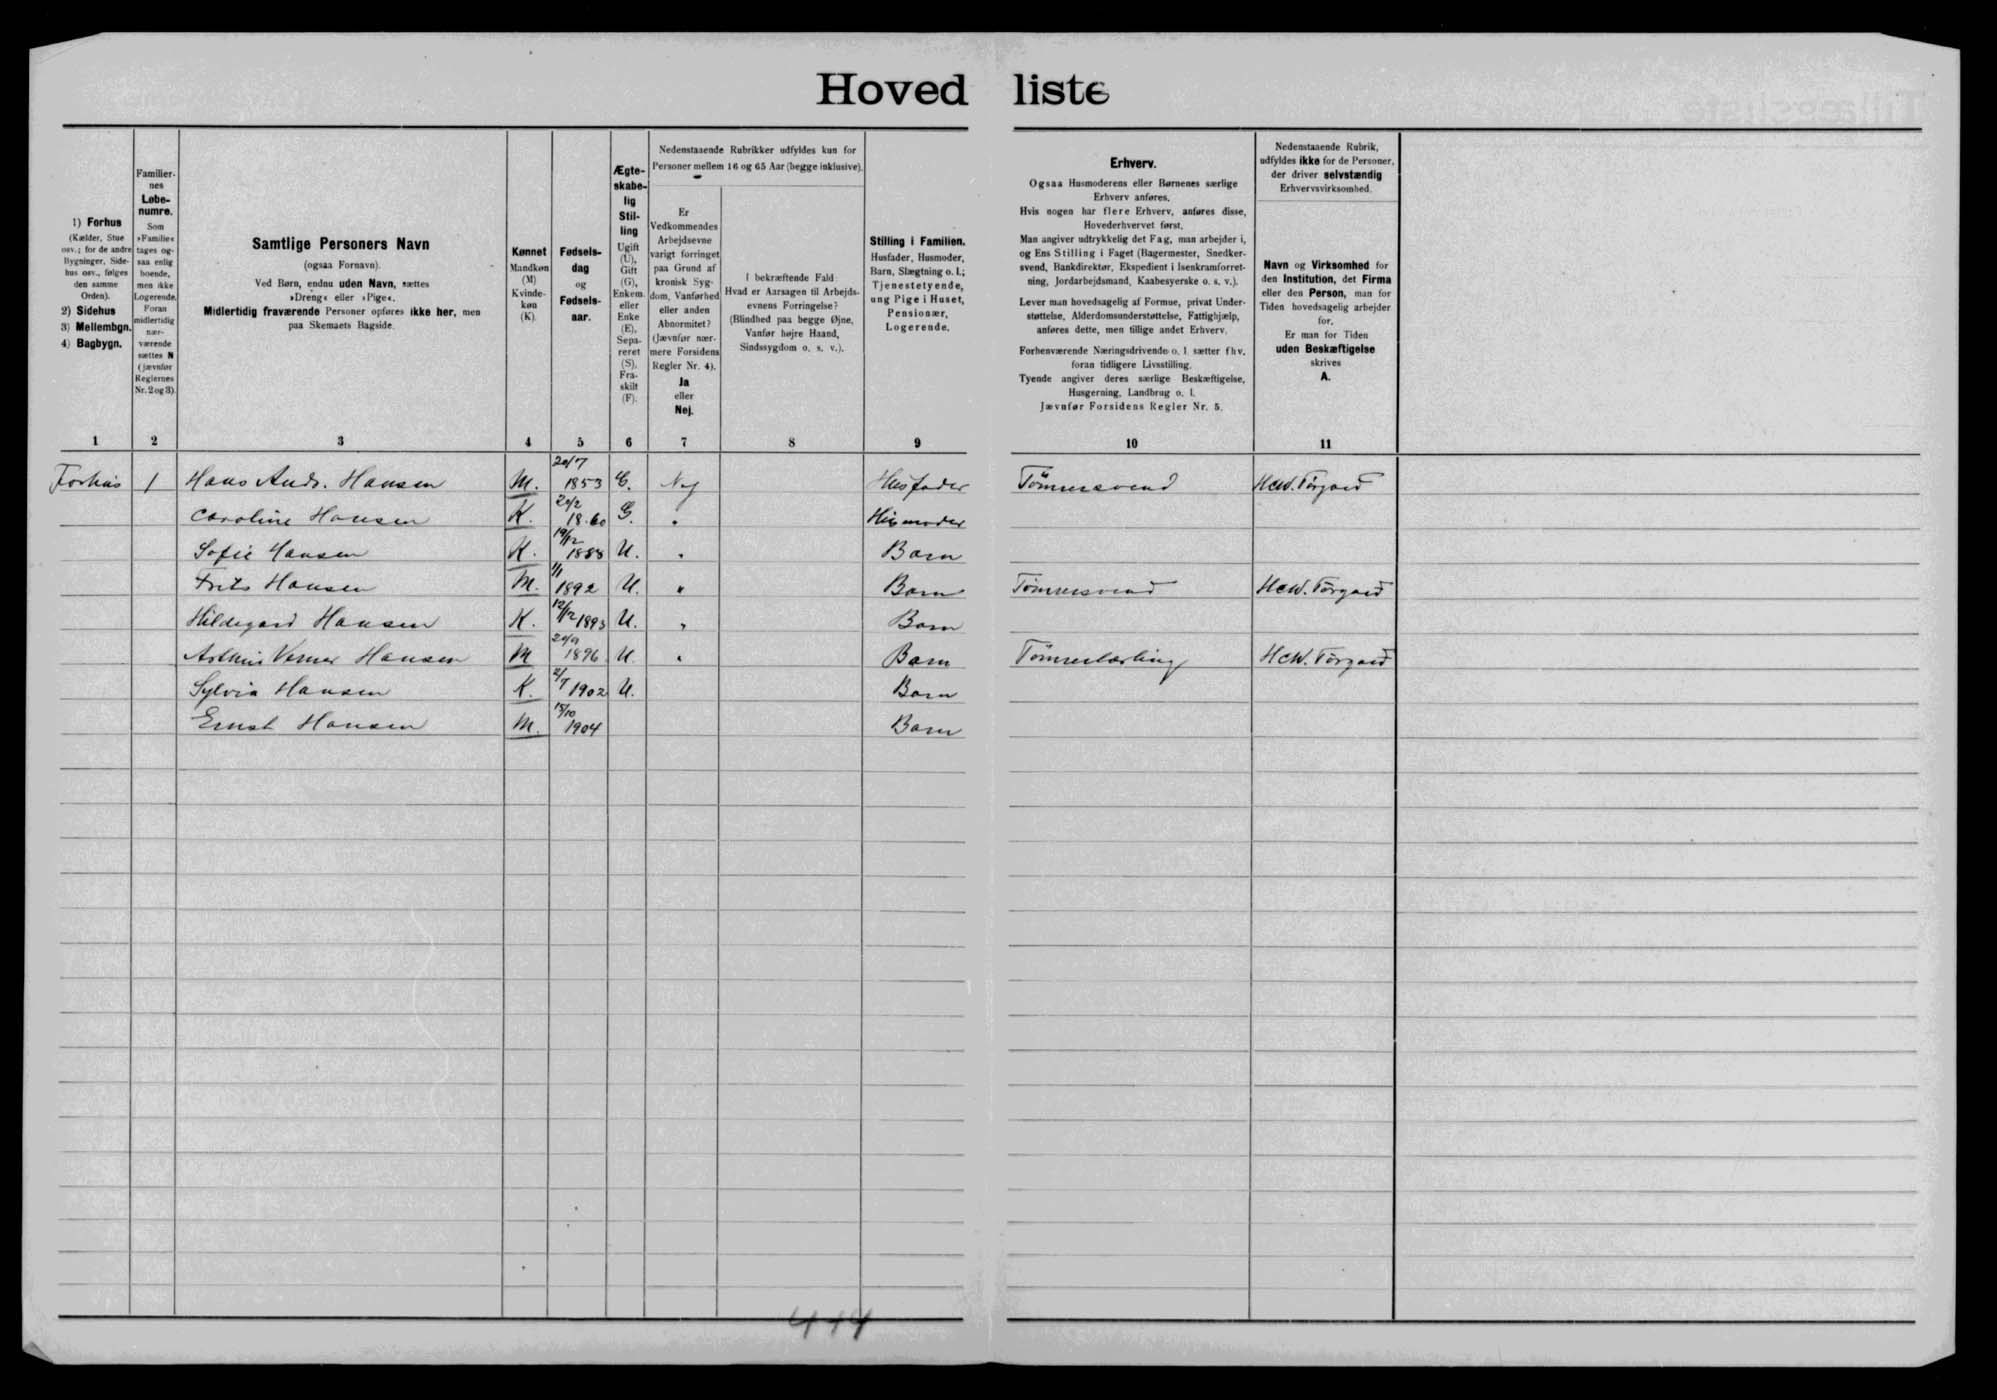 Hovedliste
1) Forhus
(Kælder, Stue
osv.; for de andre
Bygninger, Side-
hus osv., følges
den samme
Orden).
2) Sidehus
3) Mellembgn.
4) Bagbygn.
Familier-
nes
Løbe-
numre.
Som
»Familie«
tages og-
saa enlig
boende,
men ikke
Logerende.
Foran
midlertidig
nær-
værende
sættes N
(jævnfør
Reglernes
Nr. 2 og 3).
Samtlige Personers Navn
(ogsaa Fornavn).
Ved Børn, endnu uden Navn, sættes
»Dreng« eller »Pige«.
Midlertidig fraværende Personer opføres ikke her, men
paa Skemaets Bagside.
Kønnet
Mandkøn
(M)
Kvinde-
køn
(K).
Fødsels-
dag
og
Fødsels-
aar.
Ægte-
skabe-
lig
Stil-
ling
Ugift
(U),
Gift
(G),
Enkem.
eller
Enke
(E),
Sepa-
reret
(S),
Fra-
skilt
(F).
Nedenstaaende Rubrikker udfyldes kun for
Personer mellem 16 og 65 Aar (begge inklusive).
Er
Vedkommendes
Arbejdsevne
varigt forringet
paa Grund af
kronisk Syg-
dom, Vanførhed
eller anden
Abnormitet?
(Jævnfør nær-
mere Forsidens
Regler Nr. 4).
Ja
eller
Nej.
I bekræftende Fald:
Hvad er Aarsagen til Arbejds-
evnens Forringelse?
(Blindhed paa begge Øjne,
Vanfør højre Haand,
Sindssygdom o. s. v.).
Stilling i Familien.
Husfader, Husmoder,
Barn, Slægtning o. l.;
Tjenestetyende,
ung Pige i Huset,
Pensionær,
Logerende.
Erhverv.
Ogsaa Husmoderens eller Børnenes særlige
Erhverv anføres.
Hvis nogen har flere Erhverv, anføres disse,
Hovederhvervet først.
Man angiver udtrykkelig det Fag, man arbejder i,
og Ens Stilling i Faget (Bagermester, Snedker-
svend, Bankdirektør, Ekspedient i Isenkramforret-
ning, Jordarbejdsmand, Kaabesyerske o. s. v.).
Lever man hovedsagelig af Formue, privat Under-
støttelse, Alderdomsunderstøttelse, Fattighjælp,
anføres dette, men tillige andet Erhverv.
Forhenværende Næringsdrivende o. l. sætter fhv.
foran tidligere Livsstilling.
Tyende angiver deres særlige Beskæftigelse,
Husgerning, Landbrug o. l.
Jævnfør Forsidens Regler Nr. 5.
Nedenstaaende Rubrik,
udfyldes ikke for de Personer,
der driver selvstændig
Erhvervsvirksomhed.
Navn og Virksomhed for
den Institution, det Firma
eller den Person, man for
Tiden hovedsagelig arbejder
for.
Er man for Tiden
uden Beskæftigelse
skrives
A.
1 2 3 4 5 6 7 8 9 10 11
Forhus 1 Hans Andr. Hansen M. 20/7 1853 G. Nej Husfader Tömrersvend
Caroline Hansen K. 20/2 1860 G. " Husmoder
Sofie Hansen K. 19/12 1888 U. " Barn
Frits Hansen M. 1/1 1892 U. " Barn Tömrersvend
Hildegard Hansen K. 12/12 1893 U. " Barn
Arthur Verner Hansen M 20/9 1896 U. " Barn Tömrerlærling
Sylvia Hansen K. 2/7 1902 U. Barn
Ernst Hansen M. 15/10 1904 Barn